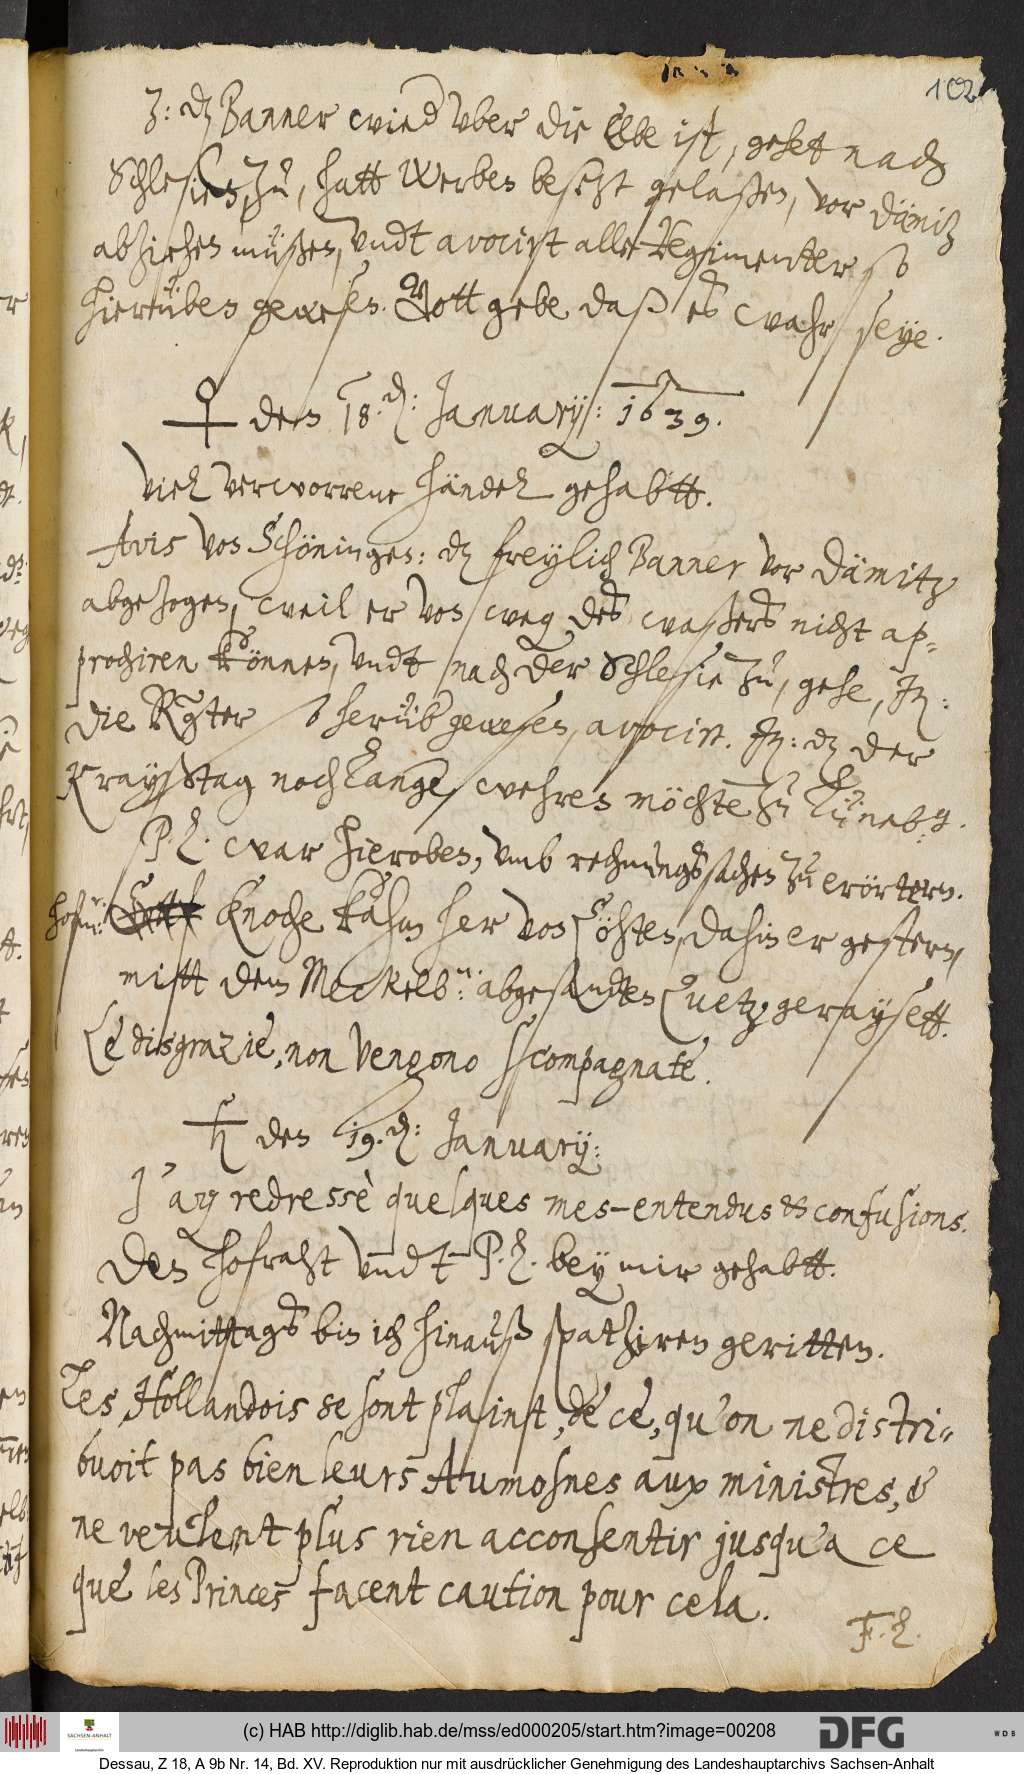 102
Z: dz Banner wied vber die Elbe ist, gehet nach
Schlesien, zu, hatt Werben besezt gelaßen, vor Dämitz
abziehen müßen, vndt avocirt alle Regimenter so
hierüben gewesen. Gott gebe daß es wahr seye.
♀ den 18. d: January: 1639.
Viel verworrene händel gehabtt.
Avis von Schöningen: dz freylich Banner vor Dämitz
abgezogen, weil er von weg des waßers nicht ap-
prochiren können, vndt nach der Schlesie zu, gehe, It:
die Rgter so herüb gewesen, avocirt. It: dz der
Krayßtag noch lange, wehren möchte zu Lüneb. g.
P. L. war hieroben, vmb rechnungßsachen zu erörtern.
hofm: Knoche kahm her von Cöhten, dahin er gestern,
mitt dem Meckelb: abgesandten Luetz, geraysett.
Le disgrazie, non vengono scompagnate.
♄ den 19. d: January:
J'ay redressè quelques mes-entendus et confusions.
Den hofraht vndt P. L. bey mir gehabtt.
Nachmittagß bin ich hinauß spatziren geritten.
Les Hollandois se sont plaints, de ce, qu'on ne distri-
buoit pas bien leurs Aumosnes aux ministres, &
ne veulent plus rien acconsentir jusqu'a ce
que les Princes facent caution pour cela.
F. L.
(c) HAB http://diglib.hab.de/mss/ed000205/start.htm?image=00208
SACHSEN-ANHALT
DFG
WDB
Dessau, Z 18, A 9b Nr. 14, Bd. XV. Reproduktion nur mit ausdrücklicher Genehmigung des Landeshauptarchivs Sachsen-Anhalt